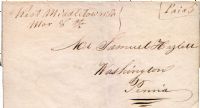 West Middletown Pa
Mar 8th
Paid
Mr Samuel Hazlett
Washington
Penna